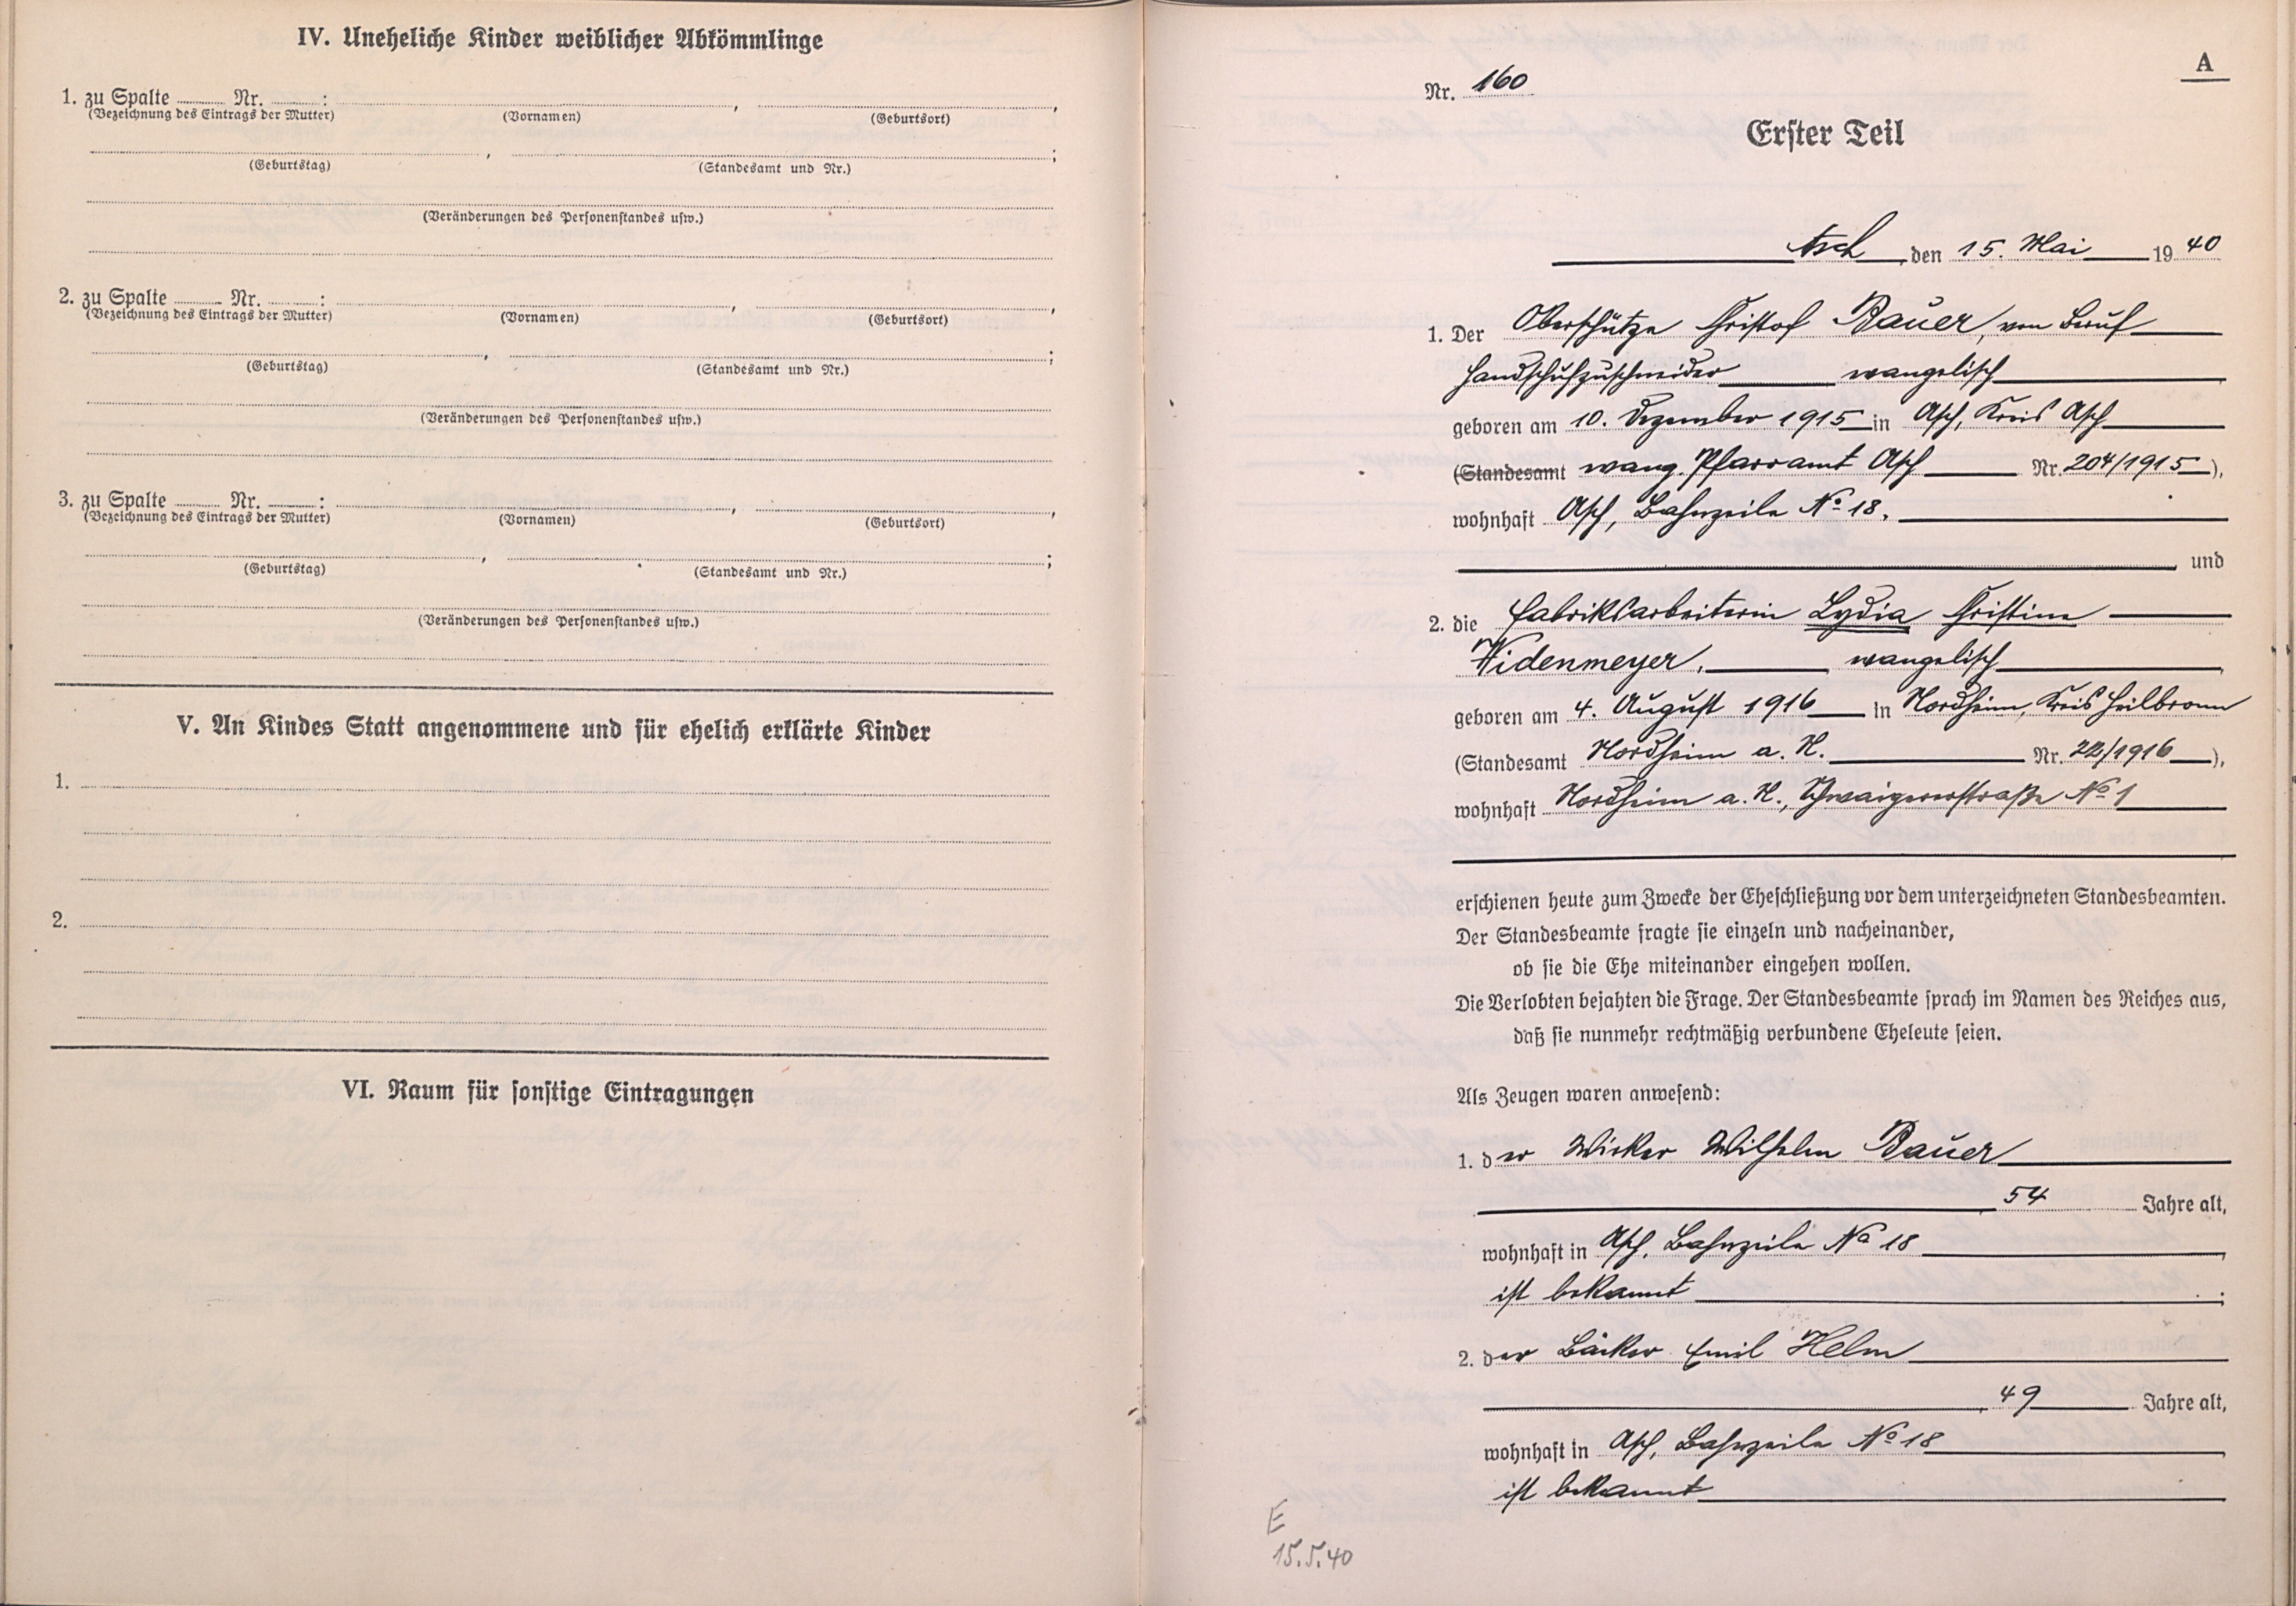 IV. Uneheliche Kinder weiblicher Abkömmlinge
1. zu Spalte ........ Nr. ........: ........, ........,
(Bezeichnung des Eintrags der Mutter) (Vornamen) (Geburtsort)
........, ........;
(Geburtstag) (Standesamt und Nr.)
(Veränderungen des Personenstandes usw.)
2. zu Spalte ........ Nr. ........: ........, ........,
(Bezeichnung des Eintrags der Mutter) (Vornamen) (Geburtsort)
........, ........;
(Geburtstag) (Standesamt und Nr.)
(Veränderungen des Personenstandes usw.)
3. zu Spalte ........ Nr. ........: ........, ........,
(Bezeichnung des Eintrags der Mutter) (Vornamen) (Geburtsort)
........, ........;
(Geburtstag) (Standesamt und Nr.)
(Veränderungen des Personenstandes usw.)
V. An Kindes Statt angenommene und für ehelich erklärte Kinder
1.
2.
VI. Raum für sonstige Eintragungen
A
Nr. 160
Erster Teil
Asch, den 15. Mai 1940
1. Der Oberschütze Christof Bauer, von Beruf
Handschuhzuschneider evangelisch
geboren am 10. Dezember 1915 in Asch, Kreis Asch
(Standesamt evang. Pfarramt Asch Nr. 204/1915),
wohnhaft Asch, Bahnzeile No 18.
und
2. die Fabriksarbeiterin Lydia Christine
Widenmeyer, evangelisch
geboren am 4. August 1916 in Nordheim, Kreis Heilbronn
(Standesamt Nordheim a. N. Nr. 22/1916),
wohnhaft Nordheim a. N., Schwaigererstraße No 1
erschienen heute zum Zwecke der Eheschließung vor dem unterzeichneten Standesbeamten.
Der Standesbeamte fragte sie einzeln und nacheinander,
ob sie die Ehe miteinander eingehen wollen.
Die Verlobten bejahten die Frage. Der Standesbeamte sprach im Namen des Reiches aus,
daß sie nunmehr rechtmäßig verbundene Eheleute seien.
Als Zeugen waren anwesend:
1. der Wirker Wilhelm Bauer
54 Jahre alt,
wohnhaft in Asch, Bahnzeile No 18
ist bekannt;
2. der Bäcker Emil Helm
49 Jahre alt,
wohnhaft in Asch, Bahnzeile No 18
ist bekannt
E
15.5.40